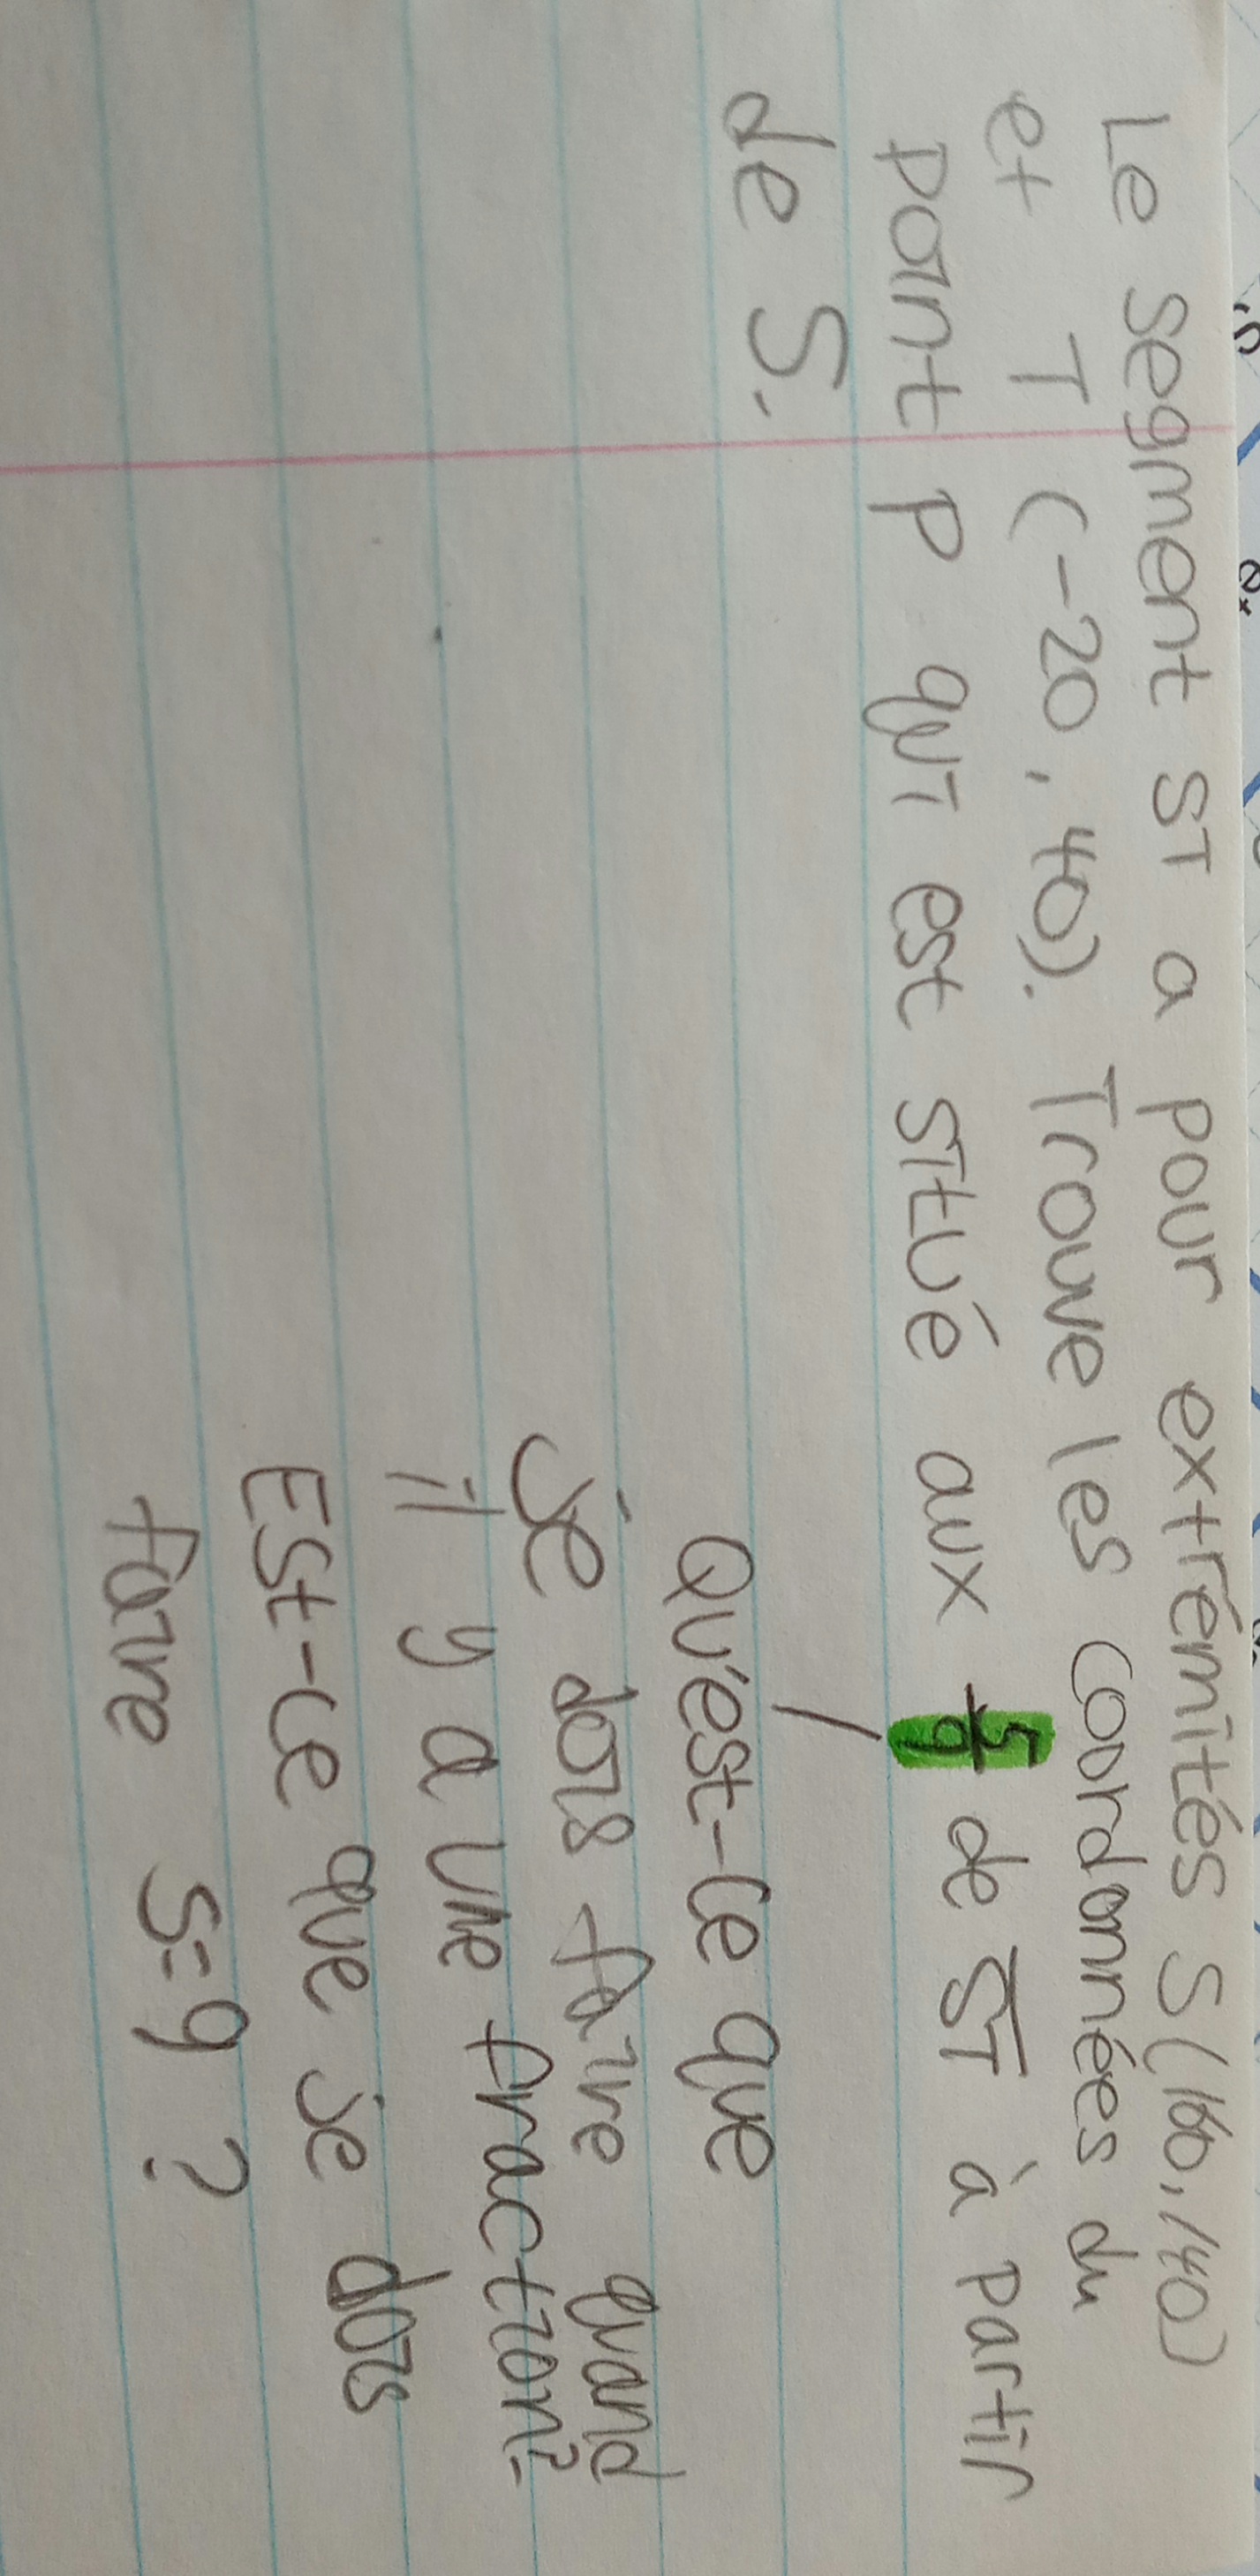 Le segment ST a pour extrémités S(160,140)
et T (-20, 40). Trouve les coordonnées du
point P qui est situé aux 5/9 de ST à partir
de S.
Qu'est-ce que
je dois faire quand
il y a une fraction?
Est-ce que je dois
faire 5÷9 ?